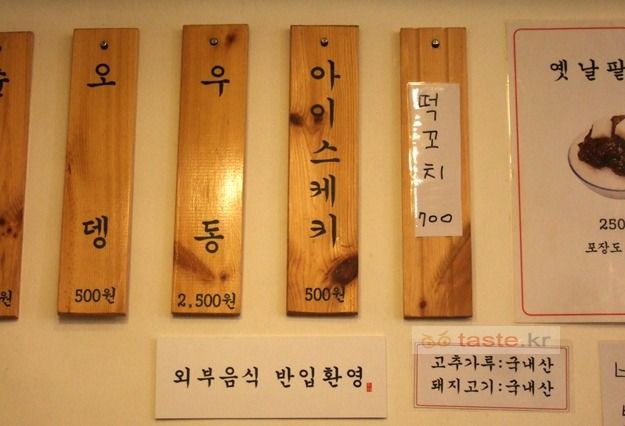 오뎅
500원
우동
2,500원
아이스케키
500원
떡꼬치
700
옛날팥
250
포장도
외부음식 반입환영
taste.kr
고추가루:국내산
돼지고기:국내산